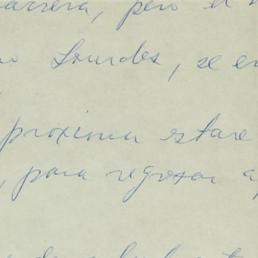 carrera, pero el
Lourdes, se en
proxima estare
, para regresar a